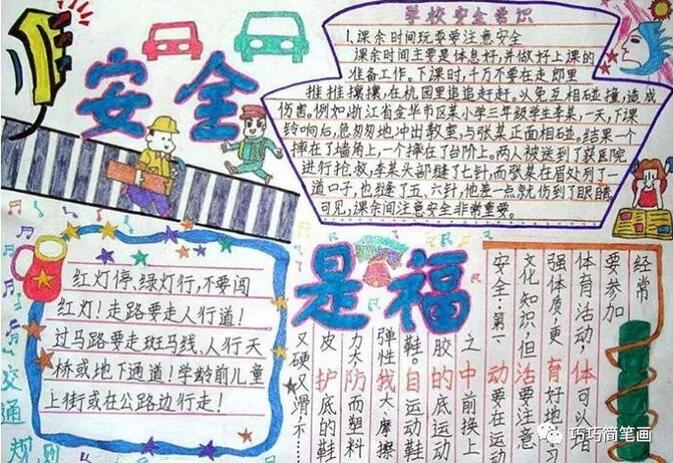 安全
是福
学校安全常识
1、课余时间玩耍要注意安全
课余时间主要是休息好,并做好上课的
准备工作。下课时,千万不要在走郎里
推推攘攘,在机园里追追赶赶。以免互相碰撞,造成
伤害。例如浙江省金华市区某小学三年级学生李某,一天,下课
铃响后,急匆匆地冲出教室,与张某正面相碰。结果一个
摔在了墙角上,一个摔在了台阶上。两人被送到了医院
进行抢救,李某头部缝了七针,而张某在眉处列了一
道口子,也缝了五、六针,他差一点就伤到了眼睛。
可见,课余间注意安全非常重要。
红灯停、绿灯行,不要闯
红灯!走路要走人行道!
过马路要走斑马线、人行天
桥或地下通道!学龄前儿童
上街或在公路边行走!
交通规则
经常
要参加
体育活动,体可以
强体质,更育好地
文化知识,但活要注意
安全:第一动要在运动
之中前换上
胶的底运动
鞋。自运动鞋
弹性我大、摩擦
力大防而塑料
皮护底的鞋
又硬又滑不
巧巧简笔画